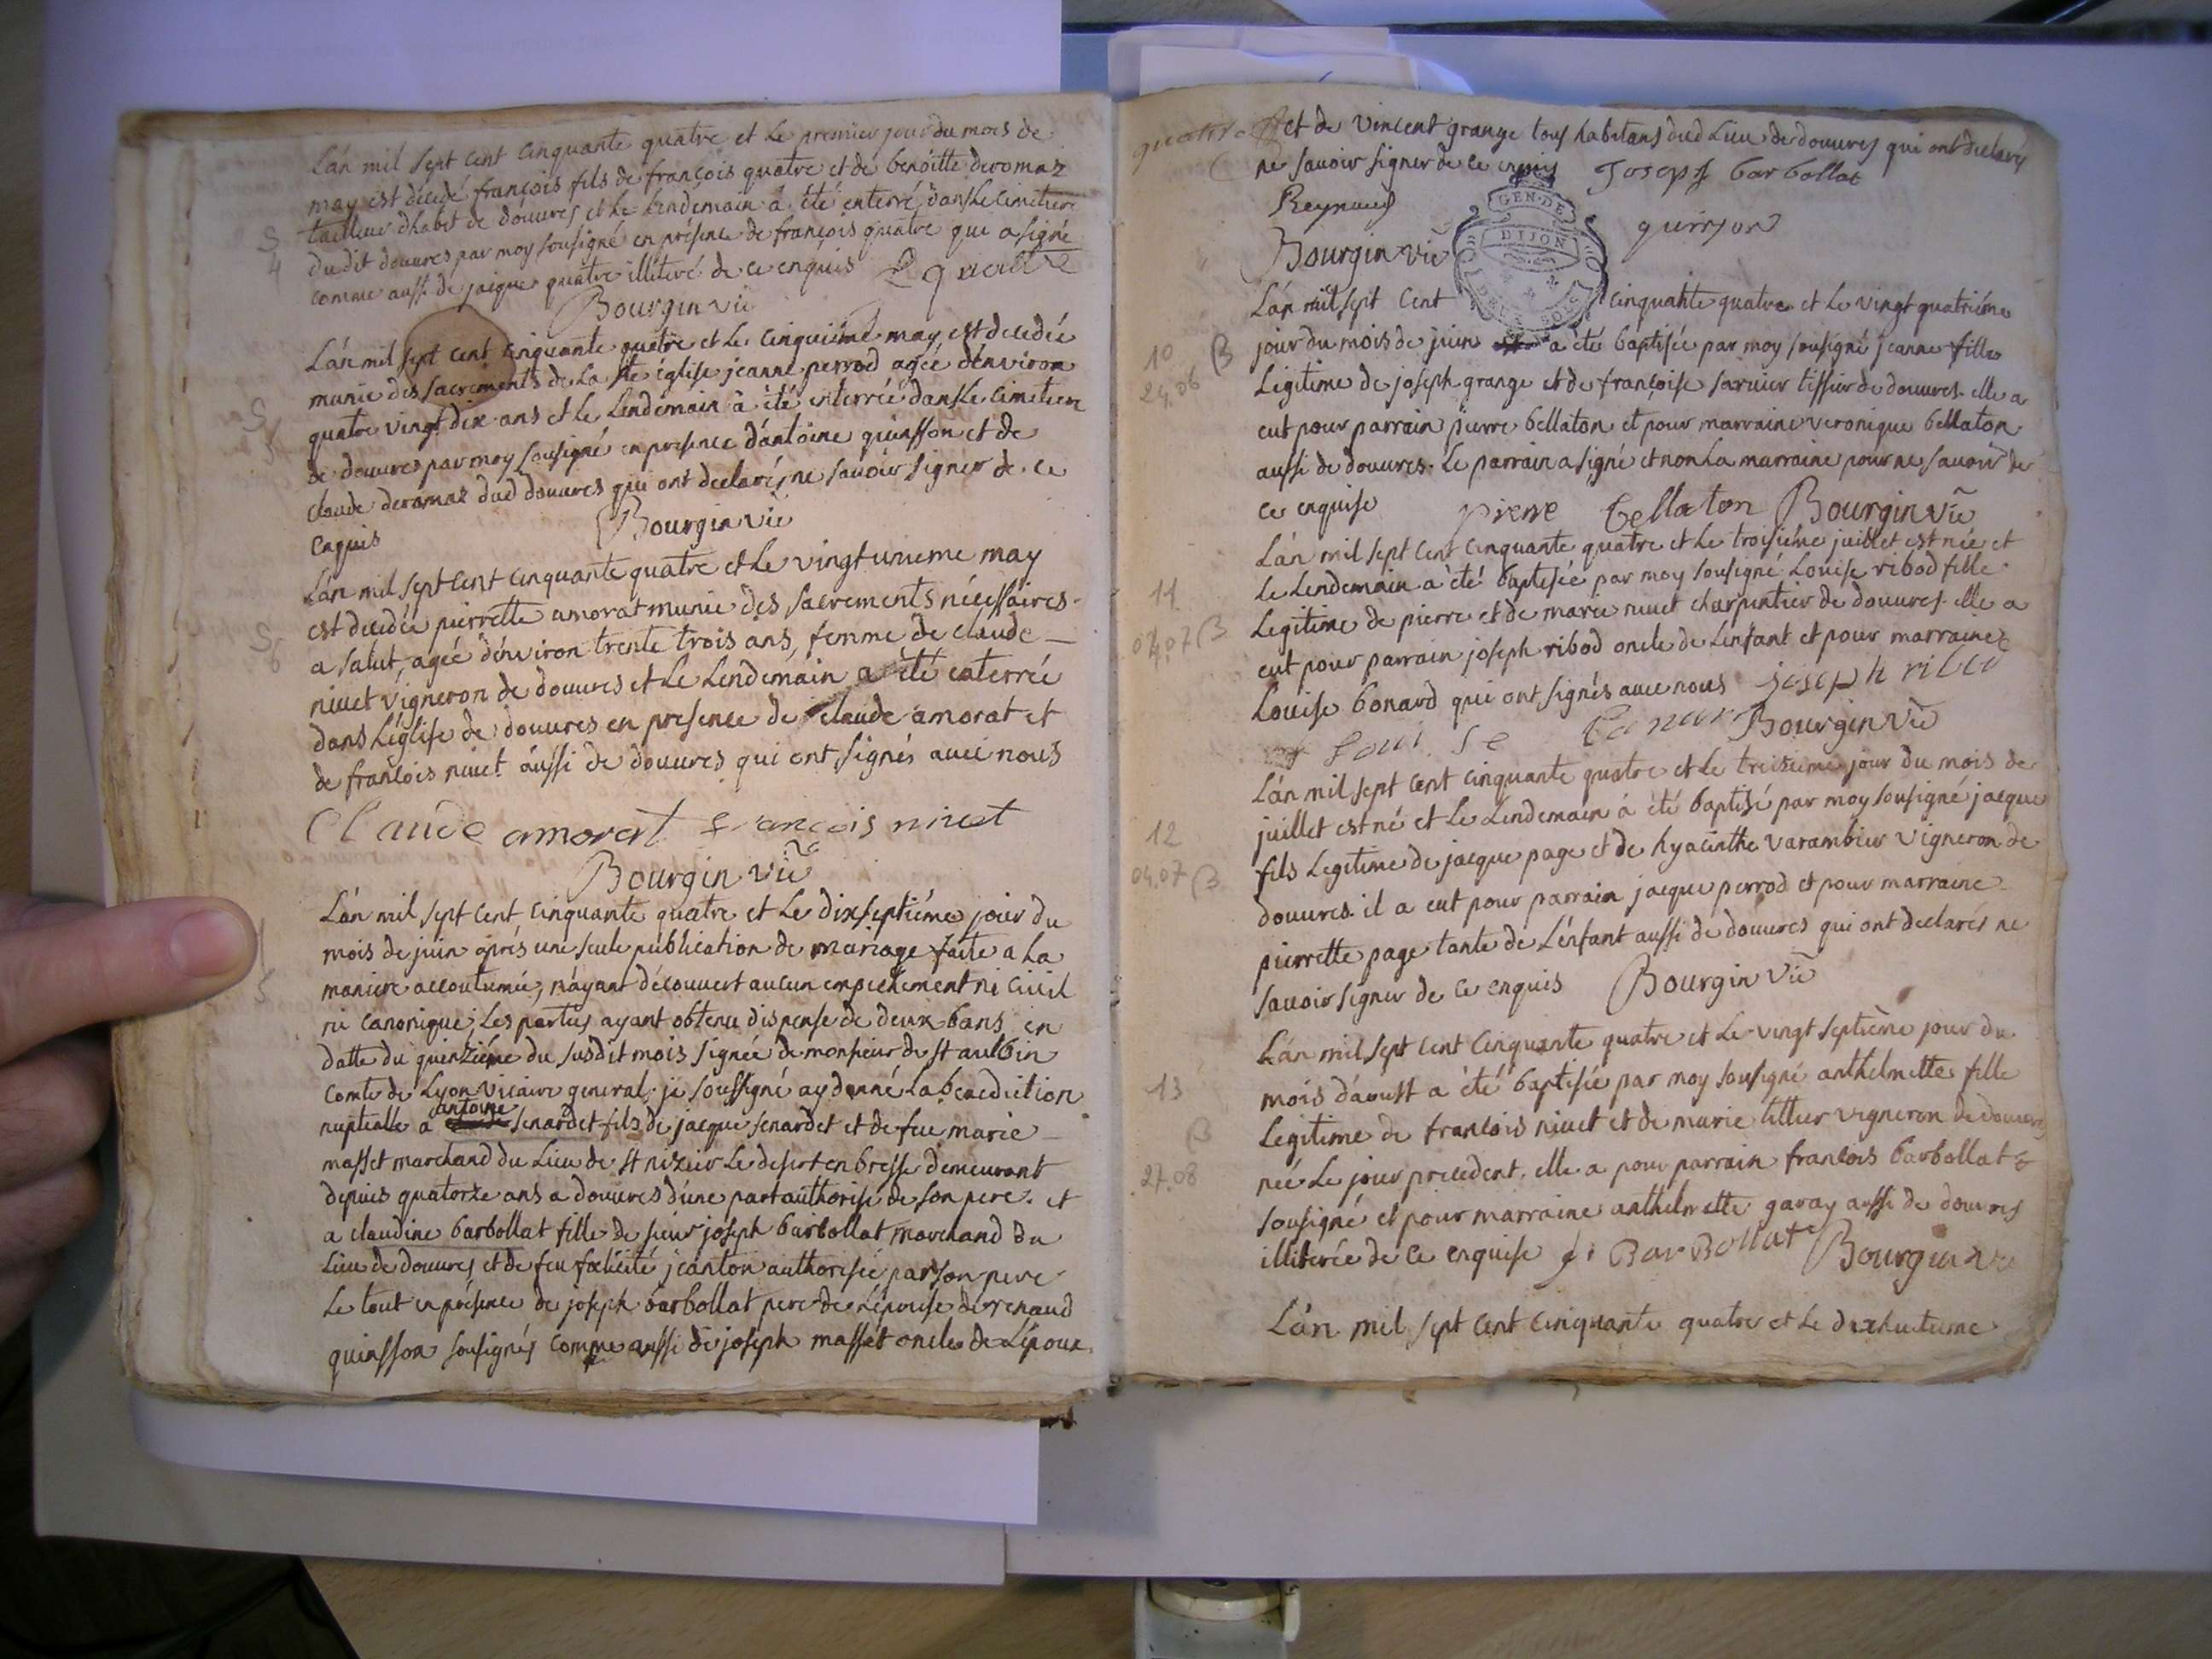 Lán mil sept cent cinquante quatre et Le premier jour du mois de
may est décedé françois fils de françois quatre et de benoitte deromaz
tailleur dhabit de douures et Le Lendemain à été enterré dans Le Cimitiere
dudit douures par moy sousigné en présence de françois quatre qui a signé
comme aussi de jaique quatre illiteré de ce enquis
Bourgin vic
Lán mil sept cent cinquante quatre et Le cinquiéme may est decedée
munie des sacrements de La Ste église jeanne perrod agée dénviron
quatre vingt dix ans et Le Lendemain à été enterrée dans Le Cimitiere
de douures par moy sousigné en presence dántoine quinsson et de
claude deromaz dud douures qui ont declarés ne sauoir signer de ce
enquis Bourgin vic
Lán mil sept cent cinquante quatre et Le vingt unieme may
est decedée pierrette amorat munie des sacrements nécessaires
a salut, agée dénviron trente trois ans, femme de claude
niuet vigneron de douures et Le Lendemain a été enterrée
dans Léglise de douures en presence de claude amorat et
de francois niuet áussi de douures qui ont signés auec nous
Claude amorat francois nivet
Bourgin vic
Lán mil sept cent cinquante quatre et Le dixseptiéme jour du
mois de juin aprés une seule publication de mariage faite a La
maniere accoutumée, náyant découvert aucun empechement ni Ciuil
ni Canonique; Les parties ayant obtenu dispense de deux bans en
datte du quinziéme du susdit mois signée de monsieur de st aulbin
Comte de Lyon Vicaire general, je soussigné ay donné La benediction
nuptialle a antoine senardet fils de jacque senardet et de feue marie
masset marchand du Lieu de st nizier Le desert en bresse demeurant
depuis quatorze ans a douures d'une part authorisé de son pere. et
a claudine barbollat fille de sieur joseph barbollat marchand du
Lieu de douures, et de feu foelicité jeanton authorisée par son pere
Le tout en présence de joseph barbollat pere de Lépouse de renaud
quinsson sousignés comme aussi de joseph massét oncle de Lépoux
et de vincent grange tous habitans dud Lieu de douures qui ont declarés
ne sauoir signer de ce enquis Joseph barbollat
Reynaud quinson
Bourgin vic
GEN. DE
DIJON
Lán mil sept Cent cinquante quatre et Le vingt quatriéme
10 jour du mois de juin a été baptisée par moy sousigné jeanne fille
24.06 B Legitime de joseph grange et de françoise saruier tissier de douures. elle a
eut pour parrain pierre bellaton et pour marraine veronique bellaton
aussi de douures. Le parrain a signé et non La marraine pour ne sauoir de
ce enquise pierre bellaton Bourgin vic
Lán mil sept cent cinquante quatre et Le troisiéme juillet est née et
11 Le Lendemain a été baptisée par moy sousigné Louise ribod fille
04.07 B Legitime de pierre et de marie niuet charpentier de douures. elle a
eut pour parrain joseph ribod oncle de Lenfant et pour marraine
Louise bonard qui ont signés auec nous joseph ribod
Loui se bonard Bourgin vic
Lán mil sept cent cinquante quatre et Le treizieme jour du mois de
12 juillet est né et Le Lendemain á été baptisé par moy sousigné jacque
04.07 B fils Legitime de jacque page et de hyacinthe varambier vigneron de
douures. il a eut pour parrain jacque perrod et pour marraine
pierrette page tante de Lénfant aussi de douures qui ont declarés ne
sauoir signer de ce enquis Bourgin vic
Lán mil sept cent cinquante quatre et Le vingt septiéme jour du
13 mois dáoust a été baptisée par moy sousigné anthelmette fille
B Legitime de francois niuet et de marie tillier vigneron de douures
27.08 née Le jour precedent. elle a pour parrain francois barbollat
sousigné et pour marraine anthelmette garay aussi de douures
illiterée de ce enquise f: BarBollat Bourgin vic
Lán mil sept cent cinquante quatre et Le dixhuitieme